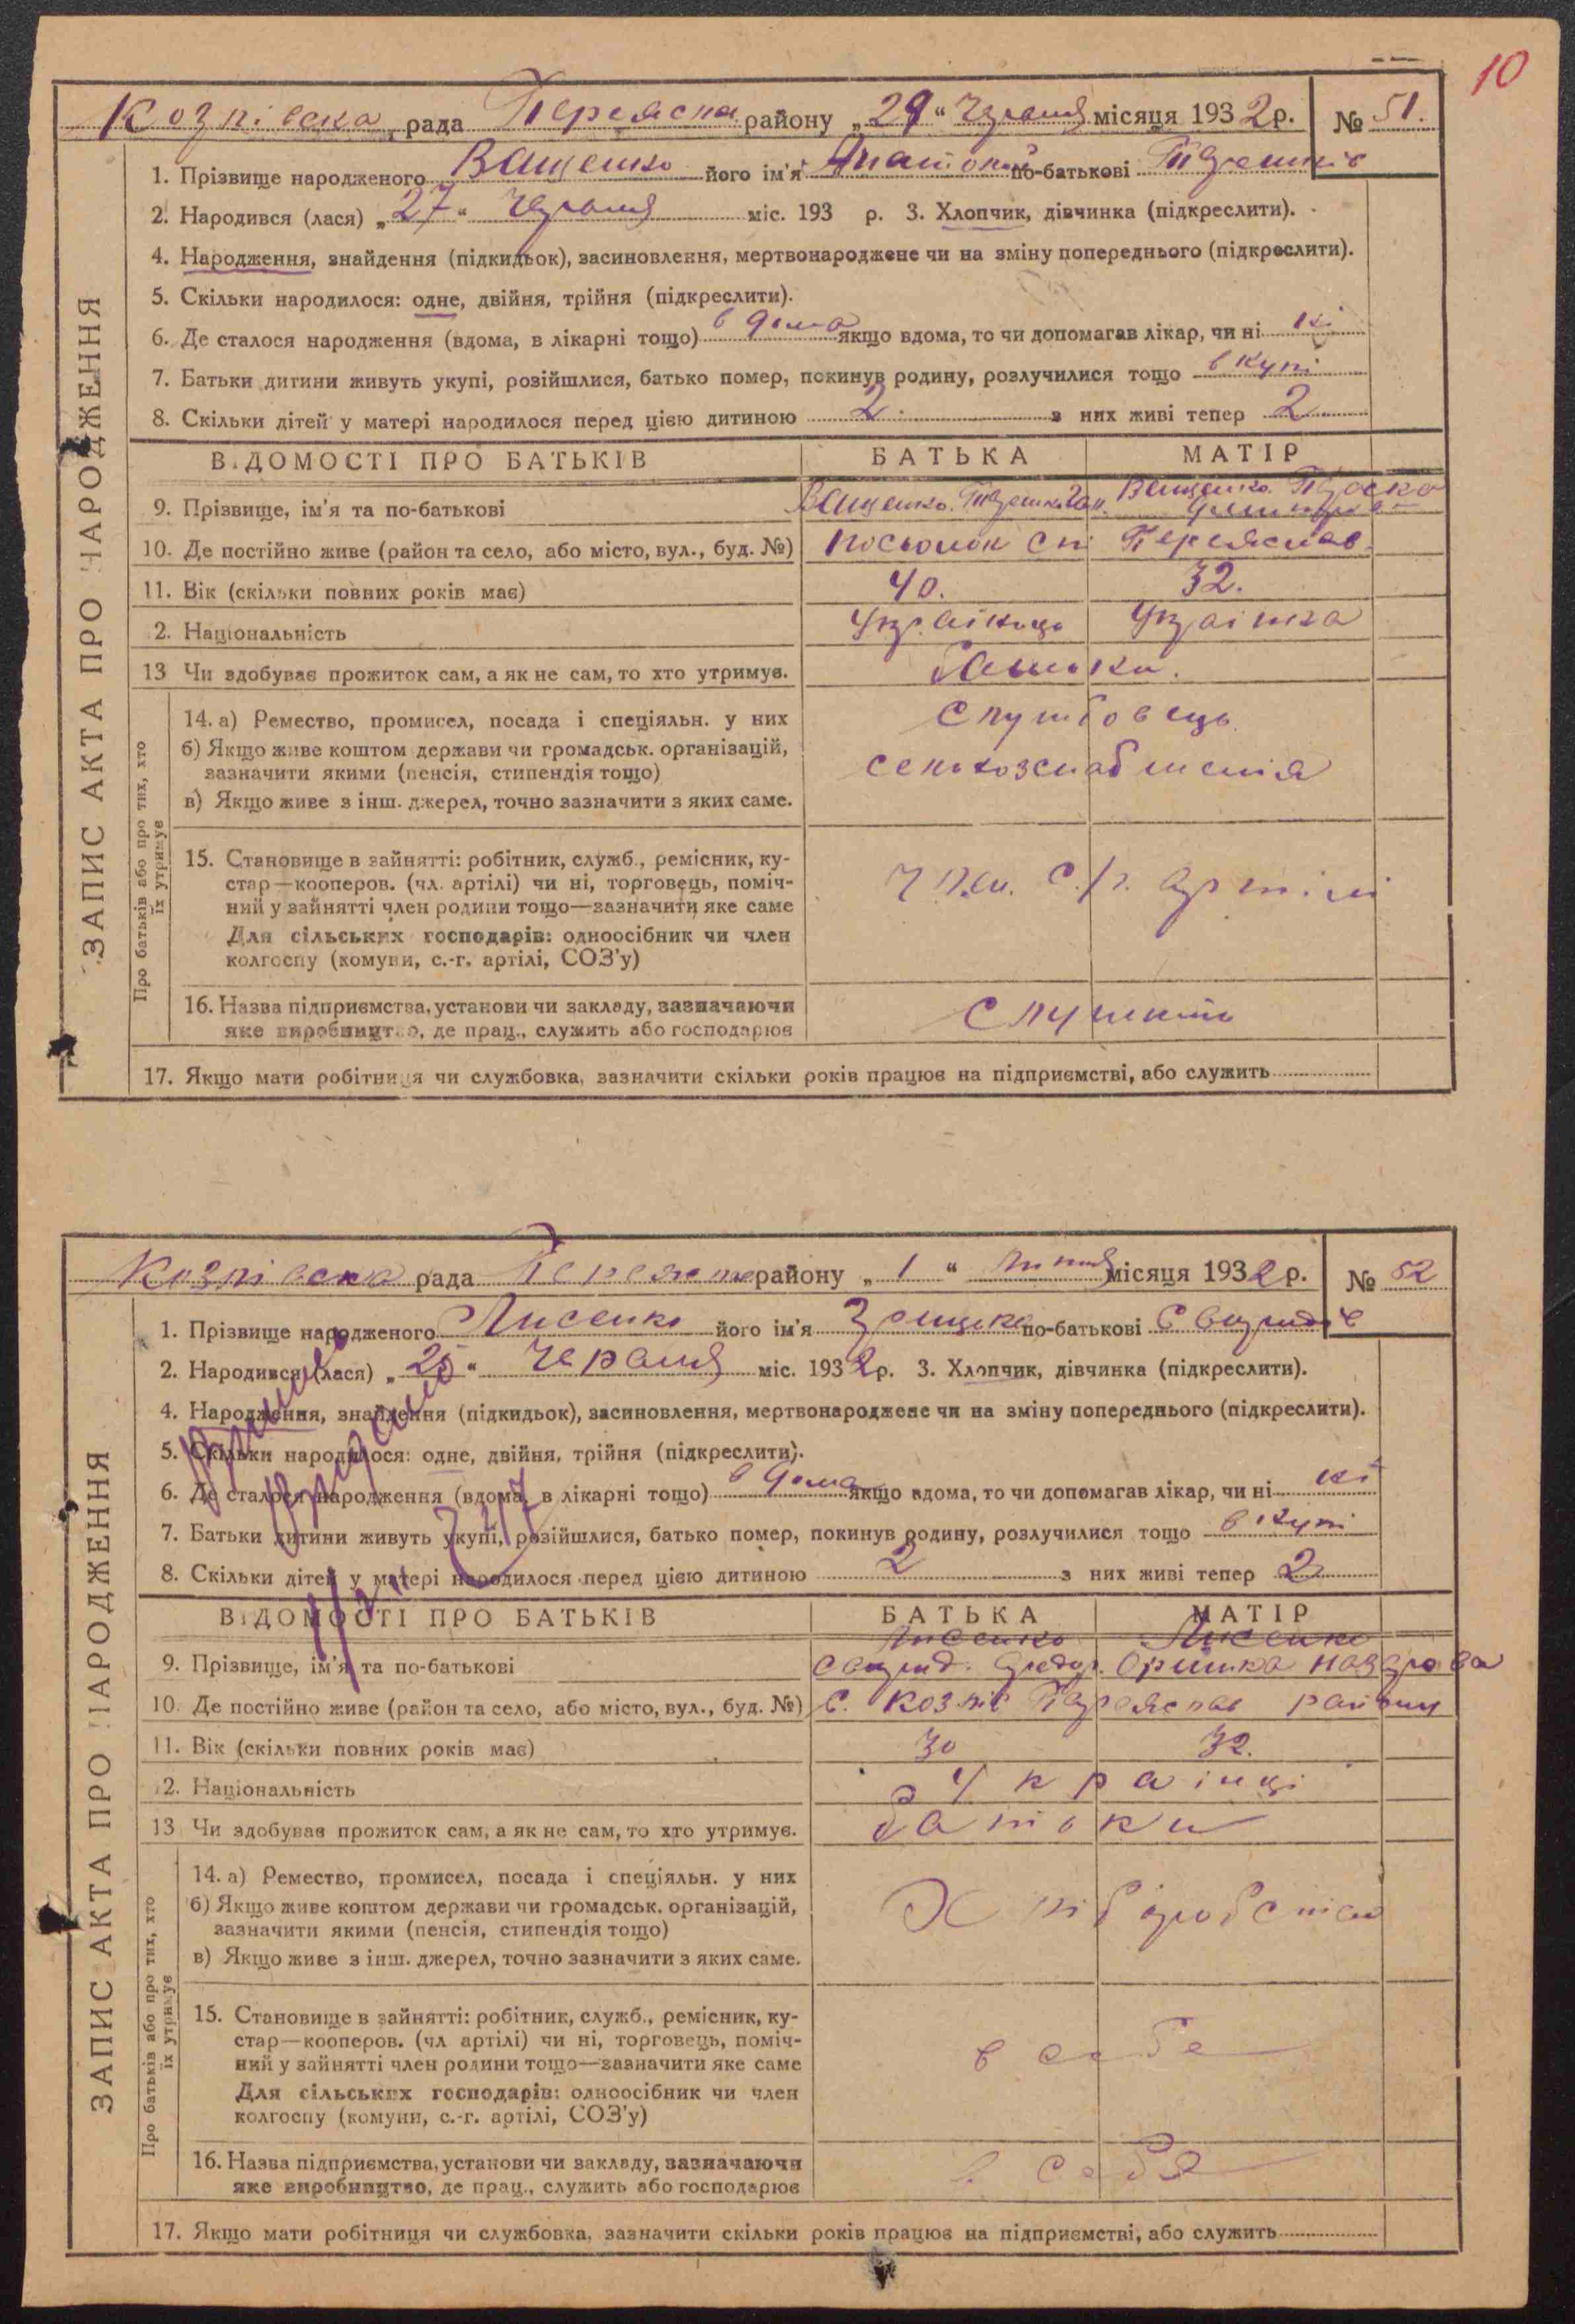 10
Козлівска рада Переясла району „29“ Червня місяця 1932 р. № 51.
1. Прізвище народженого Ващенко його ім'я Анатоній по-батькові
2. Народився (лася) „27“ Червня міс. 193 р. 3. Хлопчик, дівчинка (підкреслити).
4. Народження, знайдення (підкидьок), засиновлення, мертвонароджене чи на зміну попереднього (підкреслити).
5. Скільки народилося: одне, двійня, трійня (підкреслити).
6. Де сталося народження (вдома, в лікарні тощо) в дома якщо вдома, то чи допомагав лікар, чи ні ні
7. Батьки дитини живуть укупі, розійшлися, батько помер, покинув родину, розлучилися тощо вкупі
8. Скільки дітей у матері народилося перед цією дитиною 2. з них живі тепер 2
ЗАПИС АКТА ПРО НАРОДЖЕННЯ
ВІДОМОСТІ ПРО БАТЬКІВ БАТЬКА МАТІР
9. Прізвище, ім'я та по-батькові Ващенко. Ващенко.
10. Де постійно живе (район та село, або місто, вул., буд. №) посьолок Переяслав.
11. Вік (скільки повних років має) 40. 32.
2. Національність Українець Українка
13 Чи здобуває прожиток сам, а як не сам, то хто утримує. батьки.
Про батьків або про тих, хто їх утримує
14. а) Ремество, промисел, посада і спеціяльн. у них службовець
б) Якщо живе коштом держави чи громадськ. організацій,
зазначити якими (пенсія, стипендія тощо) сельхозснабженія
в) Якщо живе з інш. джерел, точно зазначити з яких саме.
15. Становище в зайнятті: робітник, служб., ремісник, ку-
стар—кооперов. (чл. артілі) чи ні, торговець, поміч- член. с/г. артілі
ний у зайнятті член родини тощо—зазначити яке саме
Для сільських господарів: одноосібник чи член
колгоспу (комуни, с.-г. артілі, СОЗ'у)
16. Назва підприємства, установи чи закладу, зазначаючи служить
яке виробництво, де прац., служить або господарює
17. Якщо мати робітниця чи службовка, зазначити скільки років працює на підприємстві, або служить
Козлівска рада Переясла району „1“ липня місяця 1932 р. № 52
1. Прізвище народженого Лисенко його ім'я Грицько по-батькові Свиридів
2. Народився (лася) „25“ Червня міс. 1932 р. 3. Хлопчик, дівчинка (підкреслити).
4. Народження, знайдення (підкидьок), засиновлення, мертвонароджене чи на зміну попереднього (підкреслити).
5. Скільки народилося: одне, двійня, трійня (підкреслити).
6. Де сталося народження (вдома, в лікарні тощо) в дома якщо вдома, то чи допомагав лікар, чи ні ні
7. Батьки дитини живуть укупі, розійшлися, батько помер, покинув родину, розлучилися тощо в купі
8. Скільки дітей у матері народилося перед цією дитиною 2 з них живі тепер 2
ЗАПИС АКТА ПРО НАРОДЖЕННЯ
ВІДОМОСТІ ПРО БАТЬКІВ БАТЬКА МАТІР
Лисенко Лисенко
9. Прізвище, ім'я та по-батькові Свирид. Федор. Оришка Назарова
10. Де постійно живе (район та село, або місто, вул., буд. №) с. Козлів Переяслав району
11. Вік (скільки повних років має) 30 32.
12. Національність Українці
13 Чи здобуває прожиток сам, а як не сам, то хто утримує. батьки
Про батьків або про тих, хто їх утримує
14. а) Ремество, промисел, посада і спеціяльн. у них
б) Якщо живе коштом держави чи громадськ. організацій, Хліборобством
зазначити якими (пенсія, стипендія тощо)
в) Якщо живе з інш. джерел, точно зазначити з яких саме.
15. Становище в зайнятті: робітник, служб., ремісник, ку-
стар—кооперов. (чл артілі) чи ні, торговець, поміч- в себе
ний у зайнятті член родини тощо—зазначити яке саме
Для сільських господарів: одноосібник чи член
колгоспу (комуни, с.-г. артілі, СОЗ'у)
16. Назва підприємства, установи чи закладу, зазначаючи в себя
яке виробництво, де прац., служить або господарює
17. Якщо мати робітниця чи службовка, зазначити скільки років працює на підприємстві, або служить